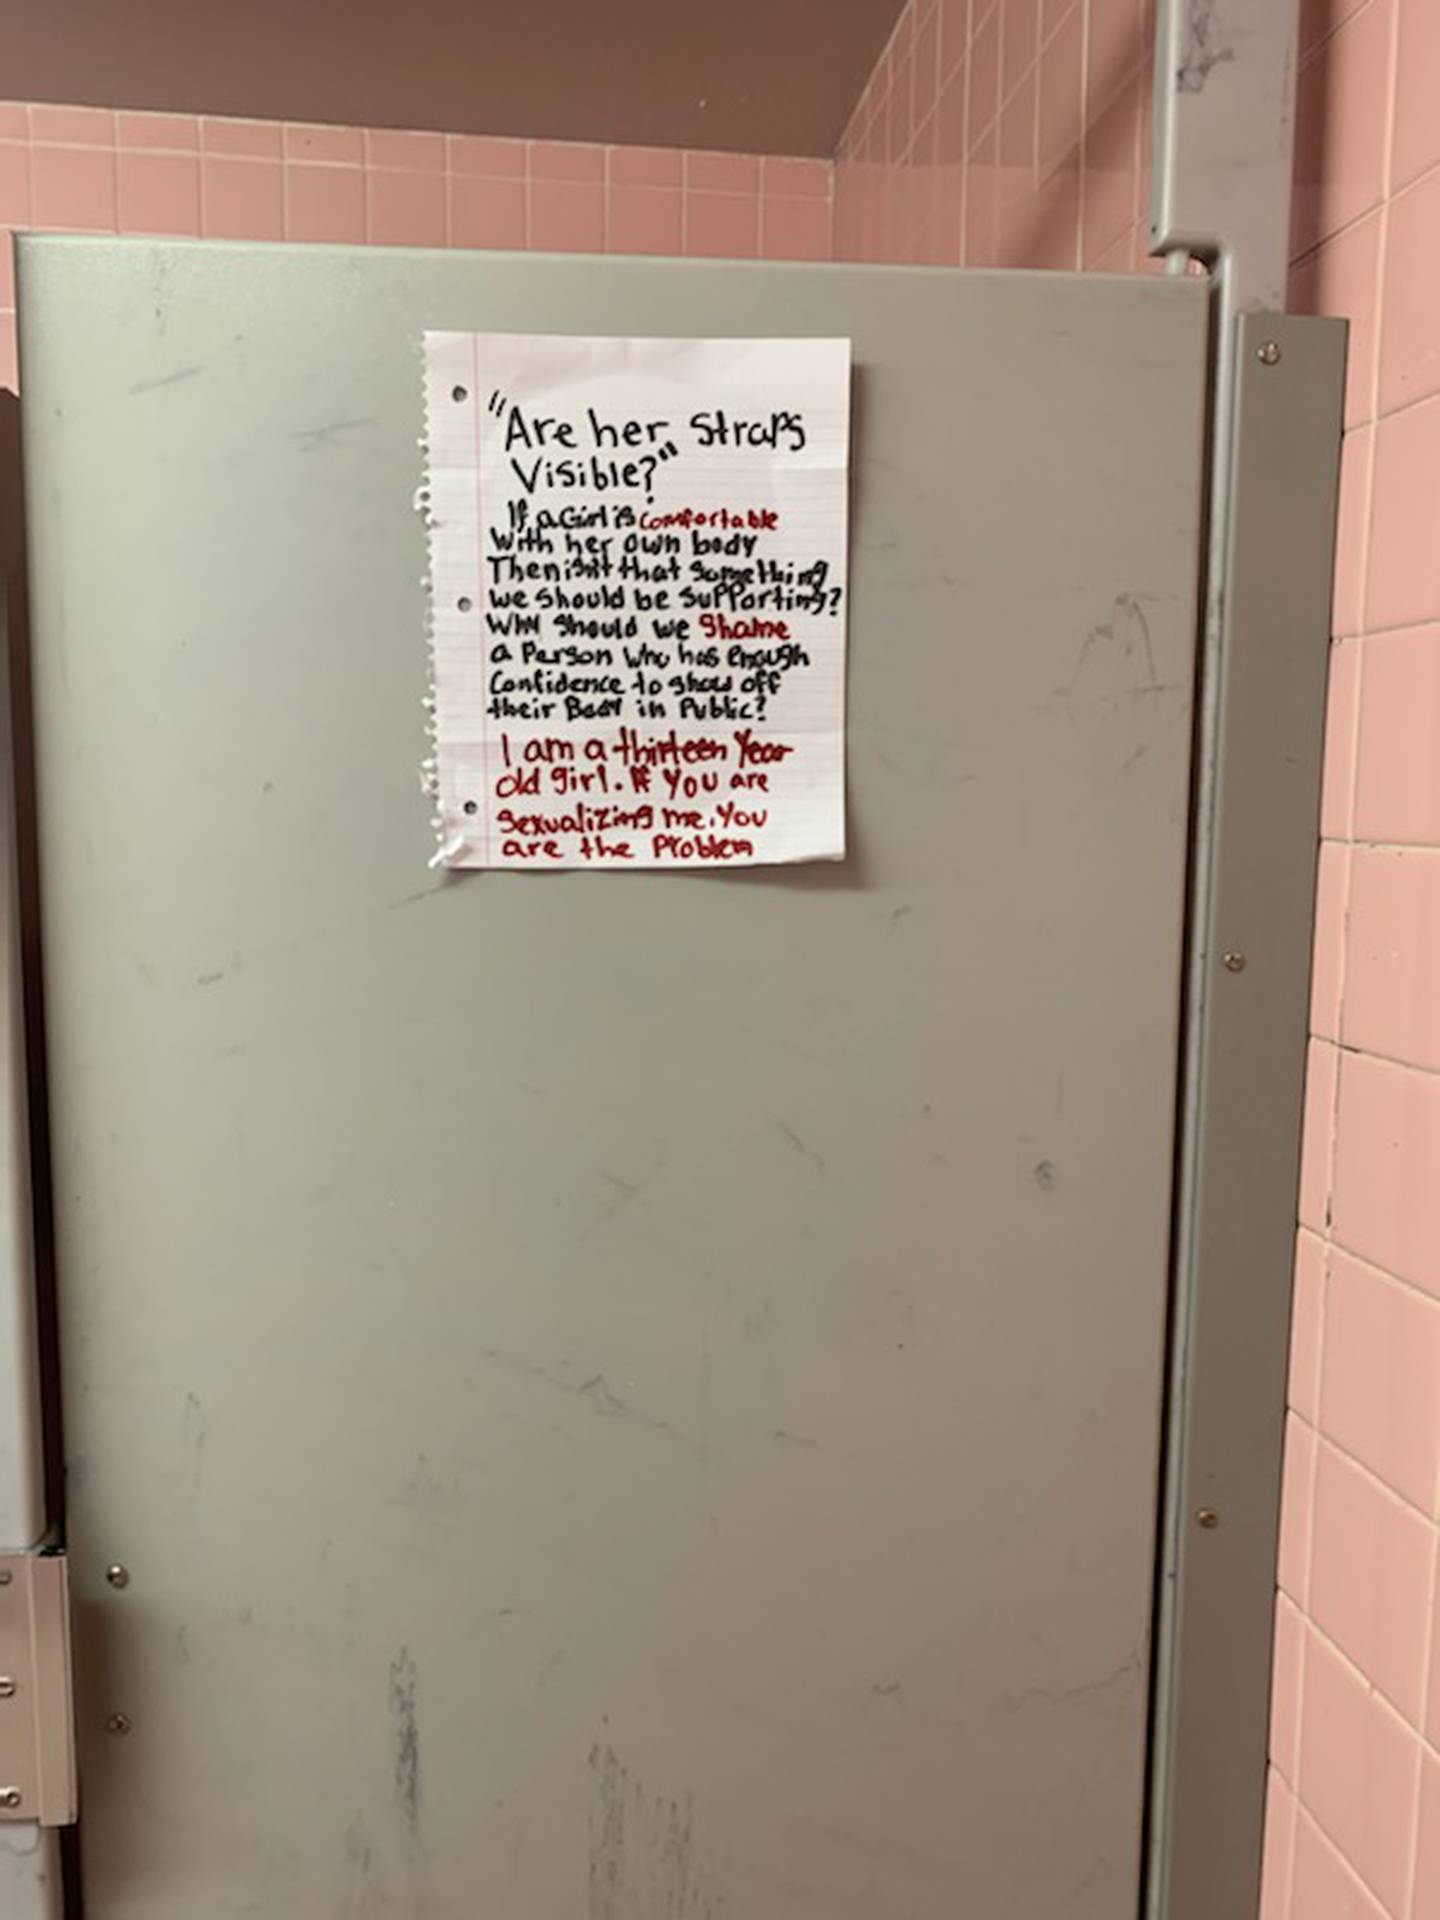 "Are her straps
Visible?"
If a Girl is comfortable
With her own body
Then isn't that something
we should be supporting?
Why should we shame
a Person who has enough
Confidence to show off
their Body in Public?
I am a thirteen Year
old girl. If you are
sexualizing me. You
are the Problem